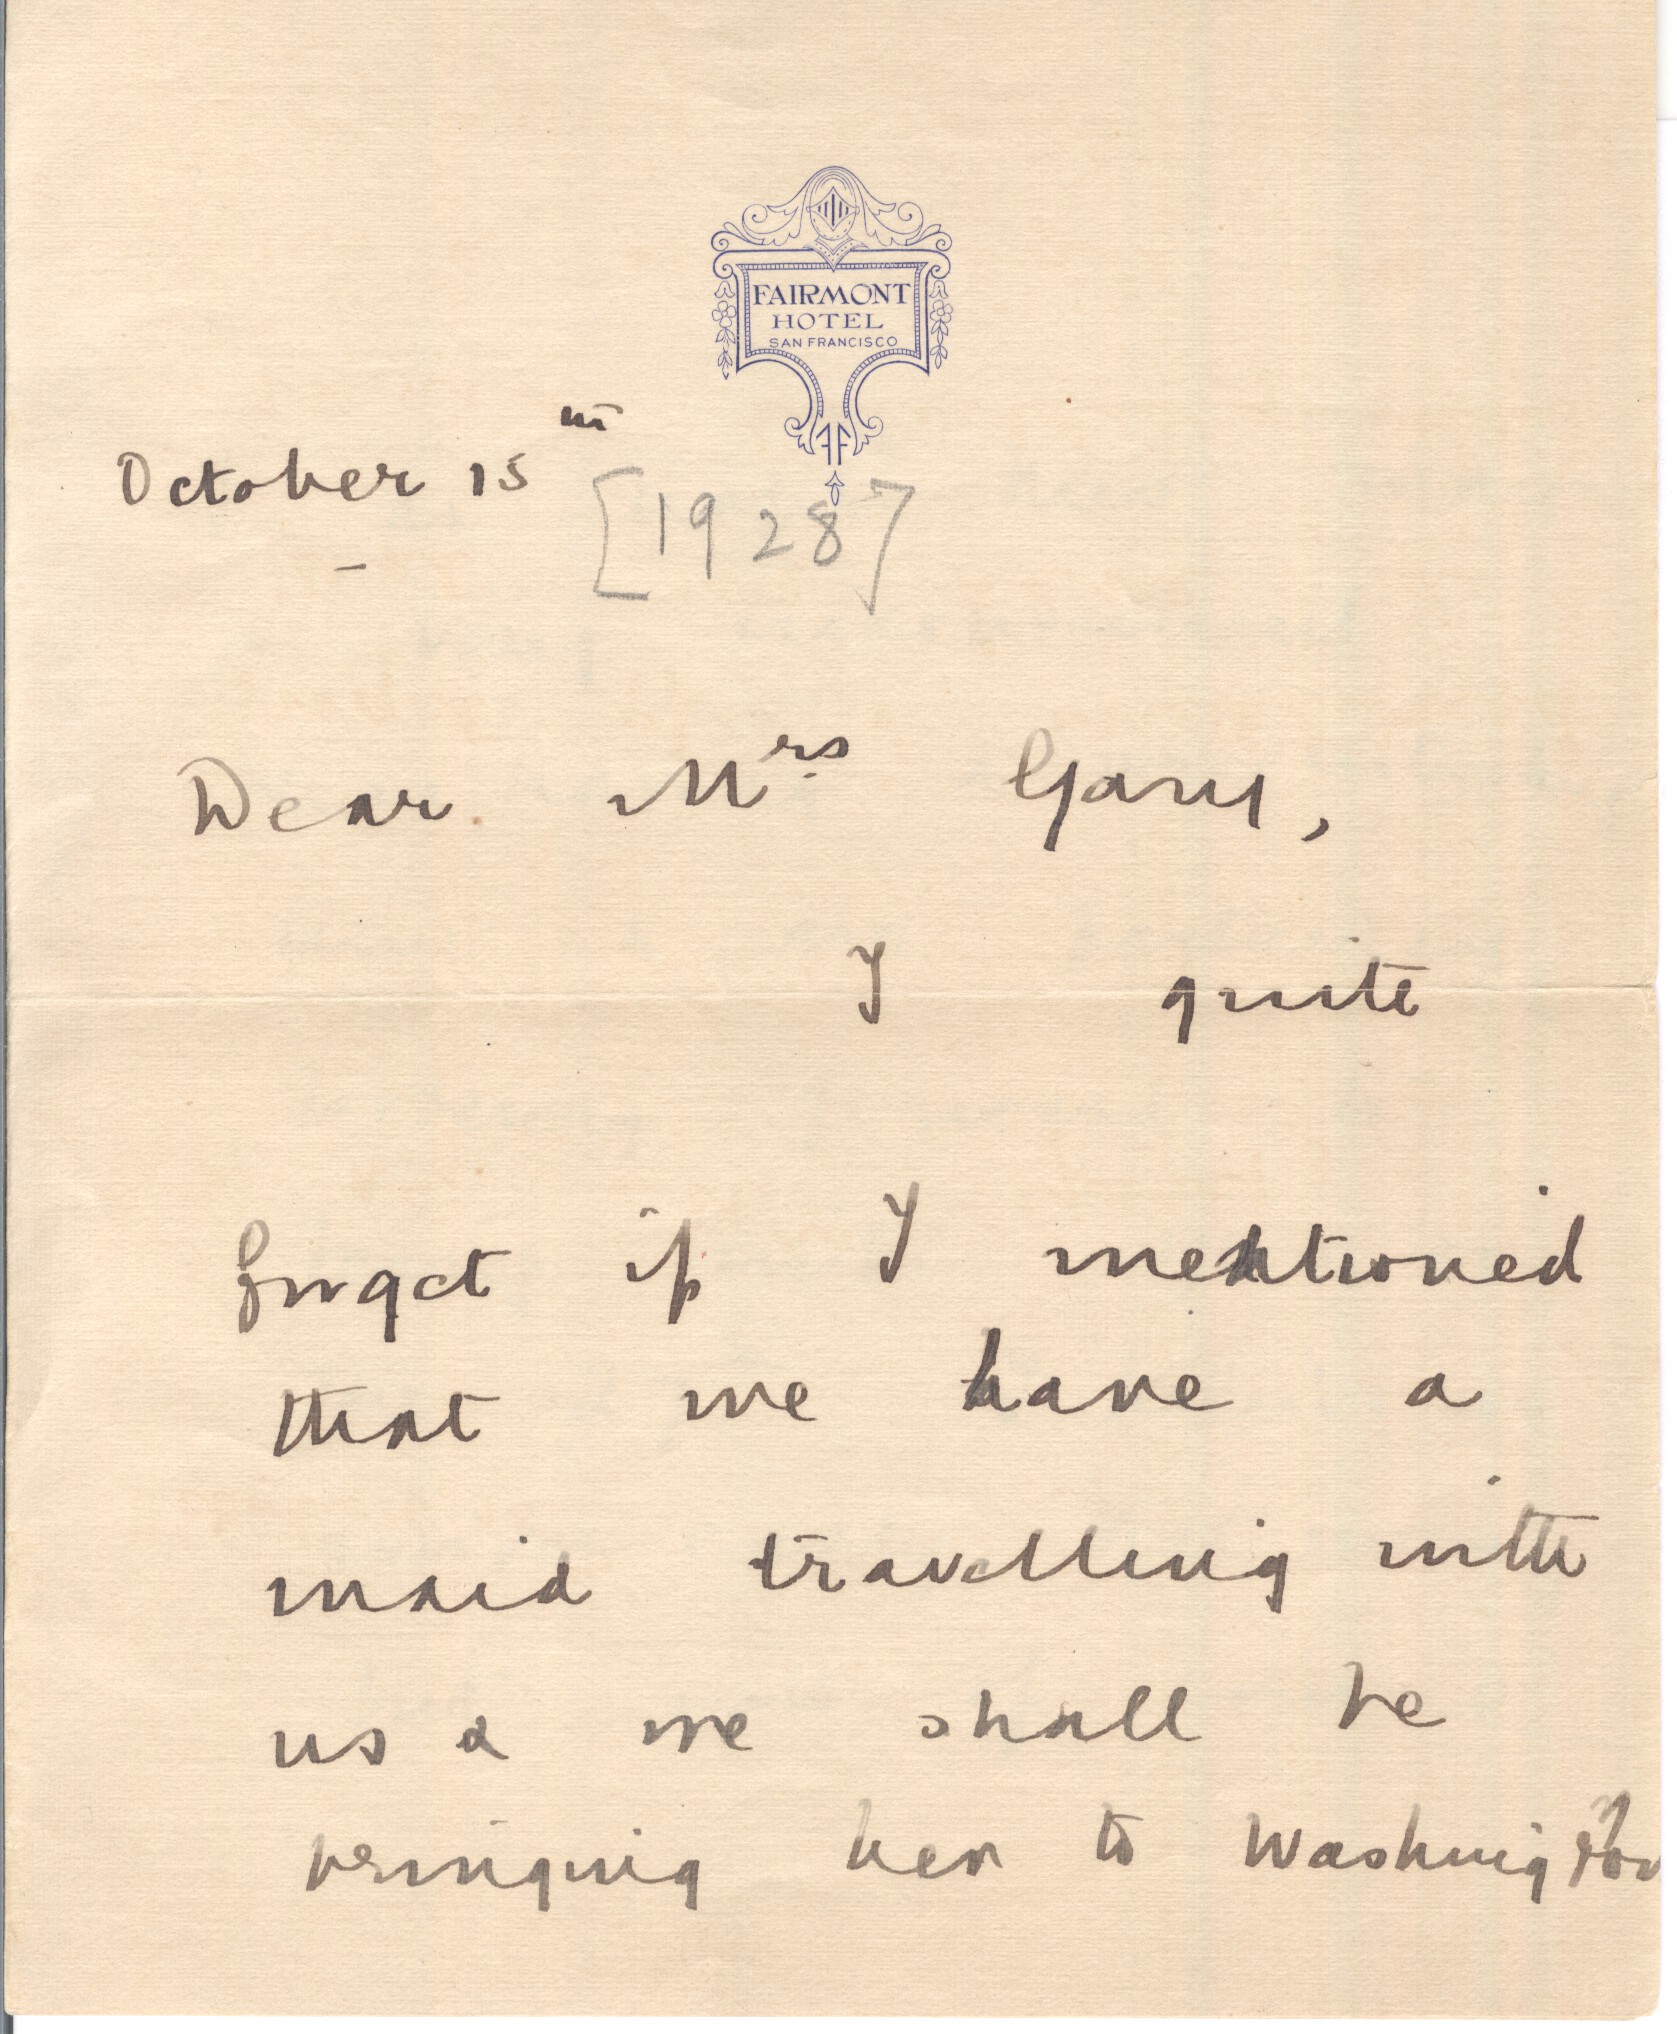 FAIRMONT
HOTEL
SAN FRANCISCO
October 15th
[1928]
Dear Mrs Gary,
I quite
forget if I mentioned
that we have a
maid travelling with
us & we shall be
bringing her to Washington